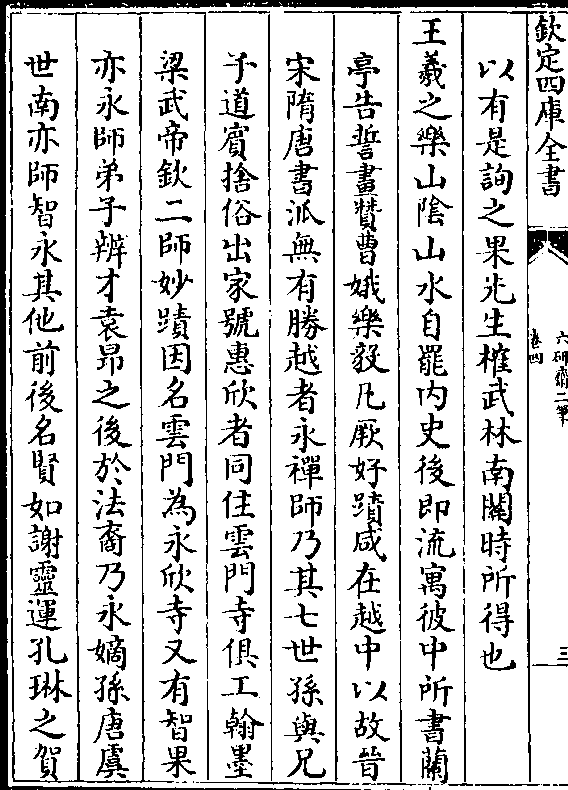 欽定四庫全書
六研齋二筆
卷四
三
以有是詢之果先生榷武林南關時所得也
王羲之樂山陰山水自罷内史後即流寓彼中所書蘭
亭告誓畫贊曹娥樂毅凡厥好蹟咸在越中以故晉
宋隋唐書派無有勝越者永禪師乃其七世孫與兄
子道賓捨俗出家號惠欣者同住雲門寺俱工翰墨
梁武帝欽二師妙蹟因名雲門為永欣寺又有智果
亦永師弟子辨才袁昻之後於法裔乃永嫡孫唐虞
世南亦師智永其他前後名賢如謝靈運孔琳之賀